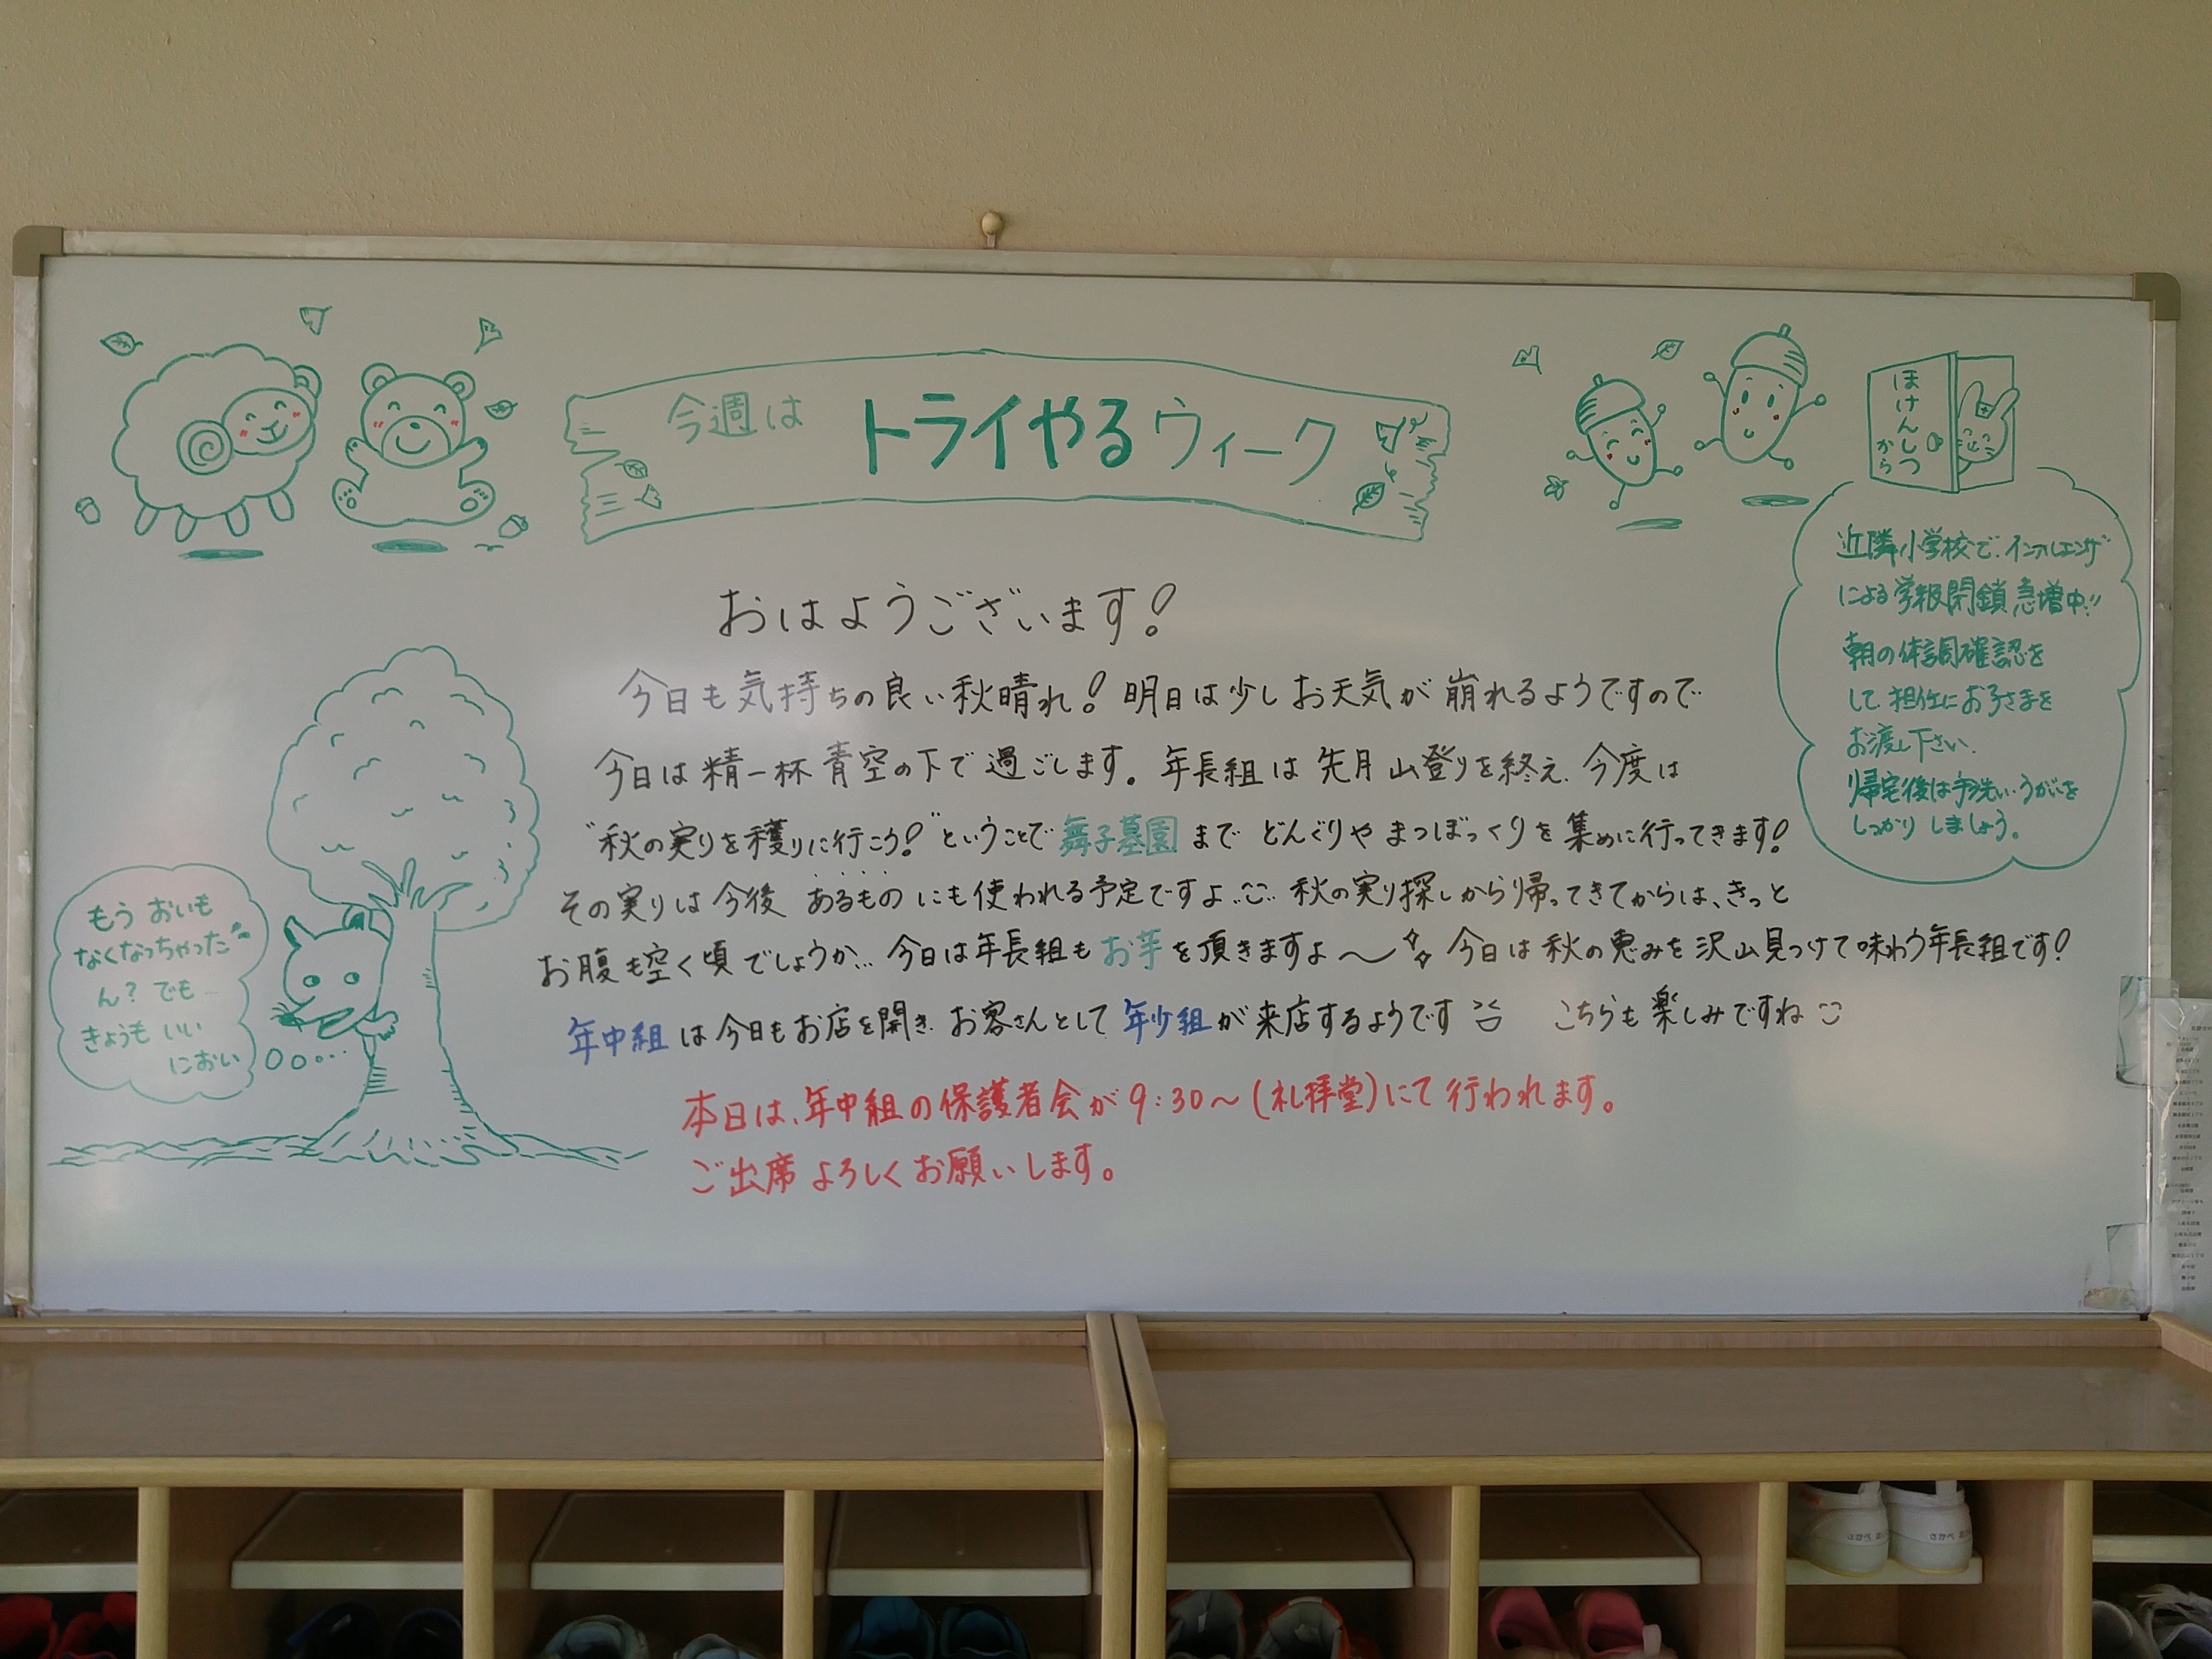 今週は トライやるウィーク
おはようございます!
今日も気持ちの良い秋晴れ! 明日は少しお天気が崩れるようですので
今日は精一杯青空の下で過ごします。年長組は先月山登りを終え、今度は
"秋の実りを穫りに行こう!"ということで舞子墓園まで どんぐりやまつぼっくりを集めに行ってきます!
その実りは今後 あるもの にも使われる予定ですよ… 秋の実り探しから帰ってきてからは、きっと
お腹も空く頃でしょうか… 今日は年長組もお芋を頂きますよ〜 今日は秋の恵みを沢山見つけて味わう年長組です!
年中組は今日もお店を開き、お客さんとして年少組が来店するようです こちらも楽しみですね
本日は、年中組の保護者会が9:30〜(礼拝堂)にて行われます。
ご出席よろしくお願いします。
もう おいも
なくなっちゃった
ん? でも
きょうも いい
におい
ほけんしつ
から
近隣小学校で、インフルエンザ
による学級閉鎖急増中!!
朝の体調確認を
して担任にお子さまを
お渡し下さい。
帰宅後は手洗い・うがいを
しっかり しましょう。
さかべ
さかべ